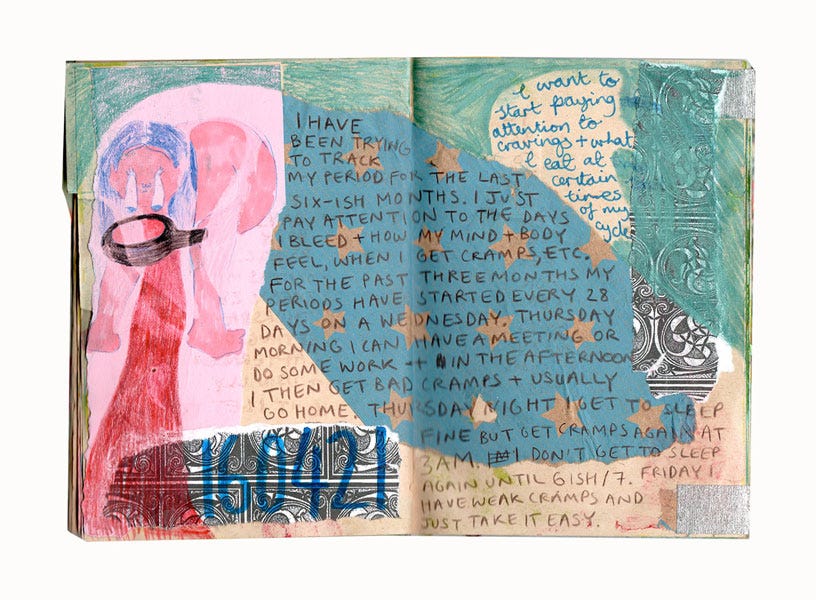 I HAVE
BEEN TRYING
TO TRACK
MY PERIOD FOR THE LAST
SIX-ISH MONTHS. I JUST
PAY ATTENTION TO THE DAYS
I BLEED + HOW MY MIND + BODY
FEEL, WHEN I GET CRAMPS, ETC.
FOR THE PAST THREE MONTHS MY
PERIODS HAVE STARTED EVERY 28
DAYS ON A WEDNESDAY. THURSDAY
MORNING I CAN HAVE A MEETING OR
DO SOME WORK + IN THE AFTERNOON
I THEN GET BAD CRAMPS + USUALLY
GO HOME. THURSDAY NIGHT I GET TO SLEEP
FINE BUT GET CRAMPS AGAIN AT
3AM. I DON'T GET TO SLEEP
AGAIN UNTIL 6ISH/7. FRIDAY I
HAVE WEAK CRAMPS AND
JUST TAKE IT EASY.
I want to
start paying
attention to
cravings + what
I eat at
certain
times
of my
cycle
160421